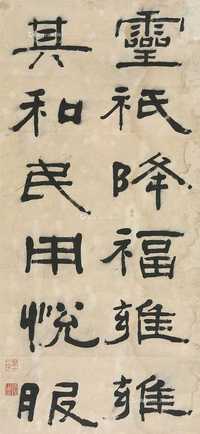 靈祇降福雍雍
其和民用悅服